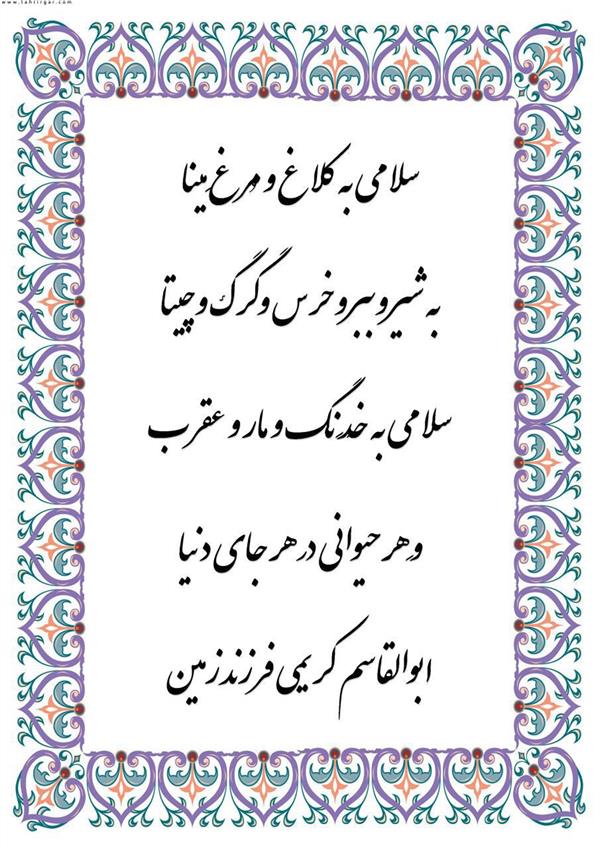 www.tahrirgar.com
سلامی به کلاغ و مرغ مینا
به شیر و ببر و خرس و گرگ و چیتا
سلامی به خدنگ و مار و عقرب
و هر حیوانی در هر جای دنیا
ابوالقاسم کریمی فرزند زمین